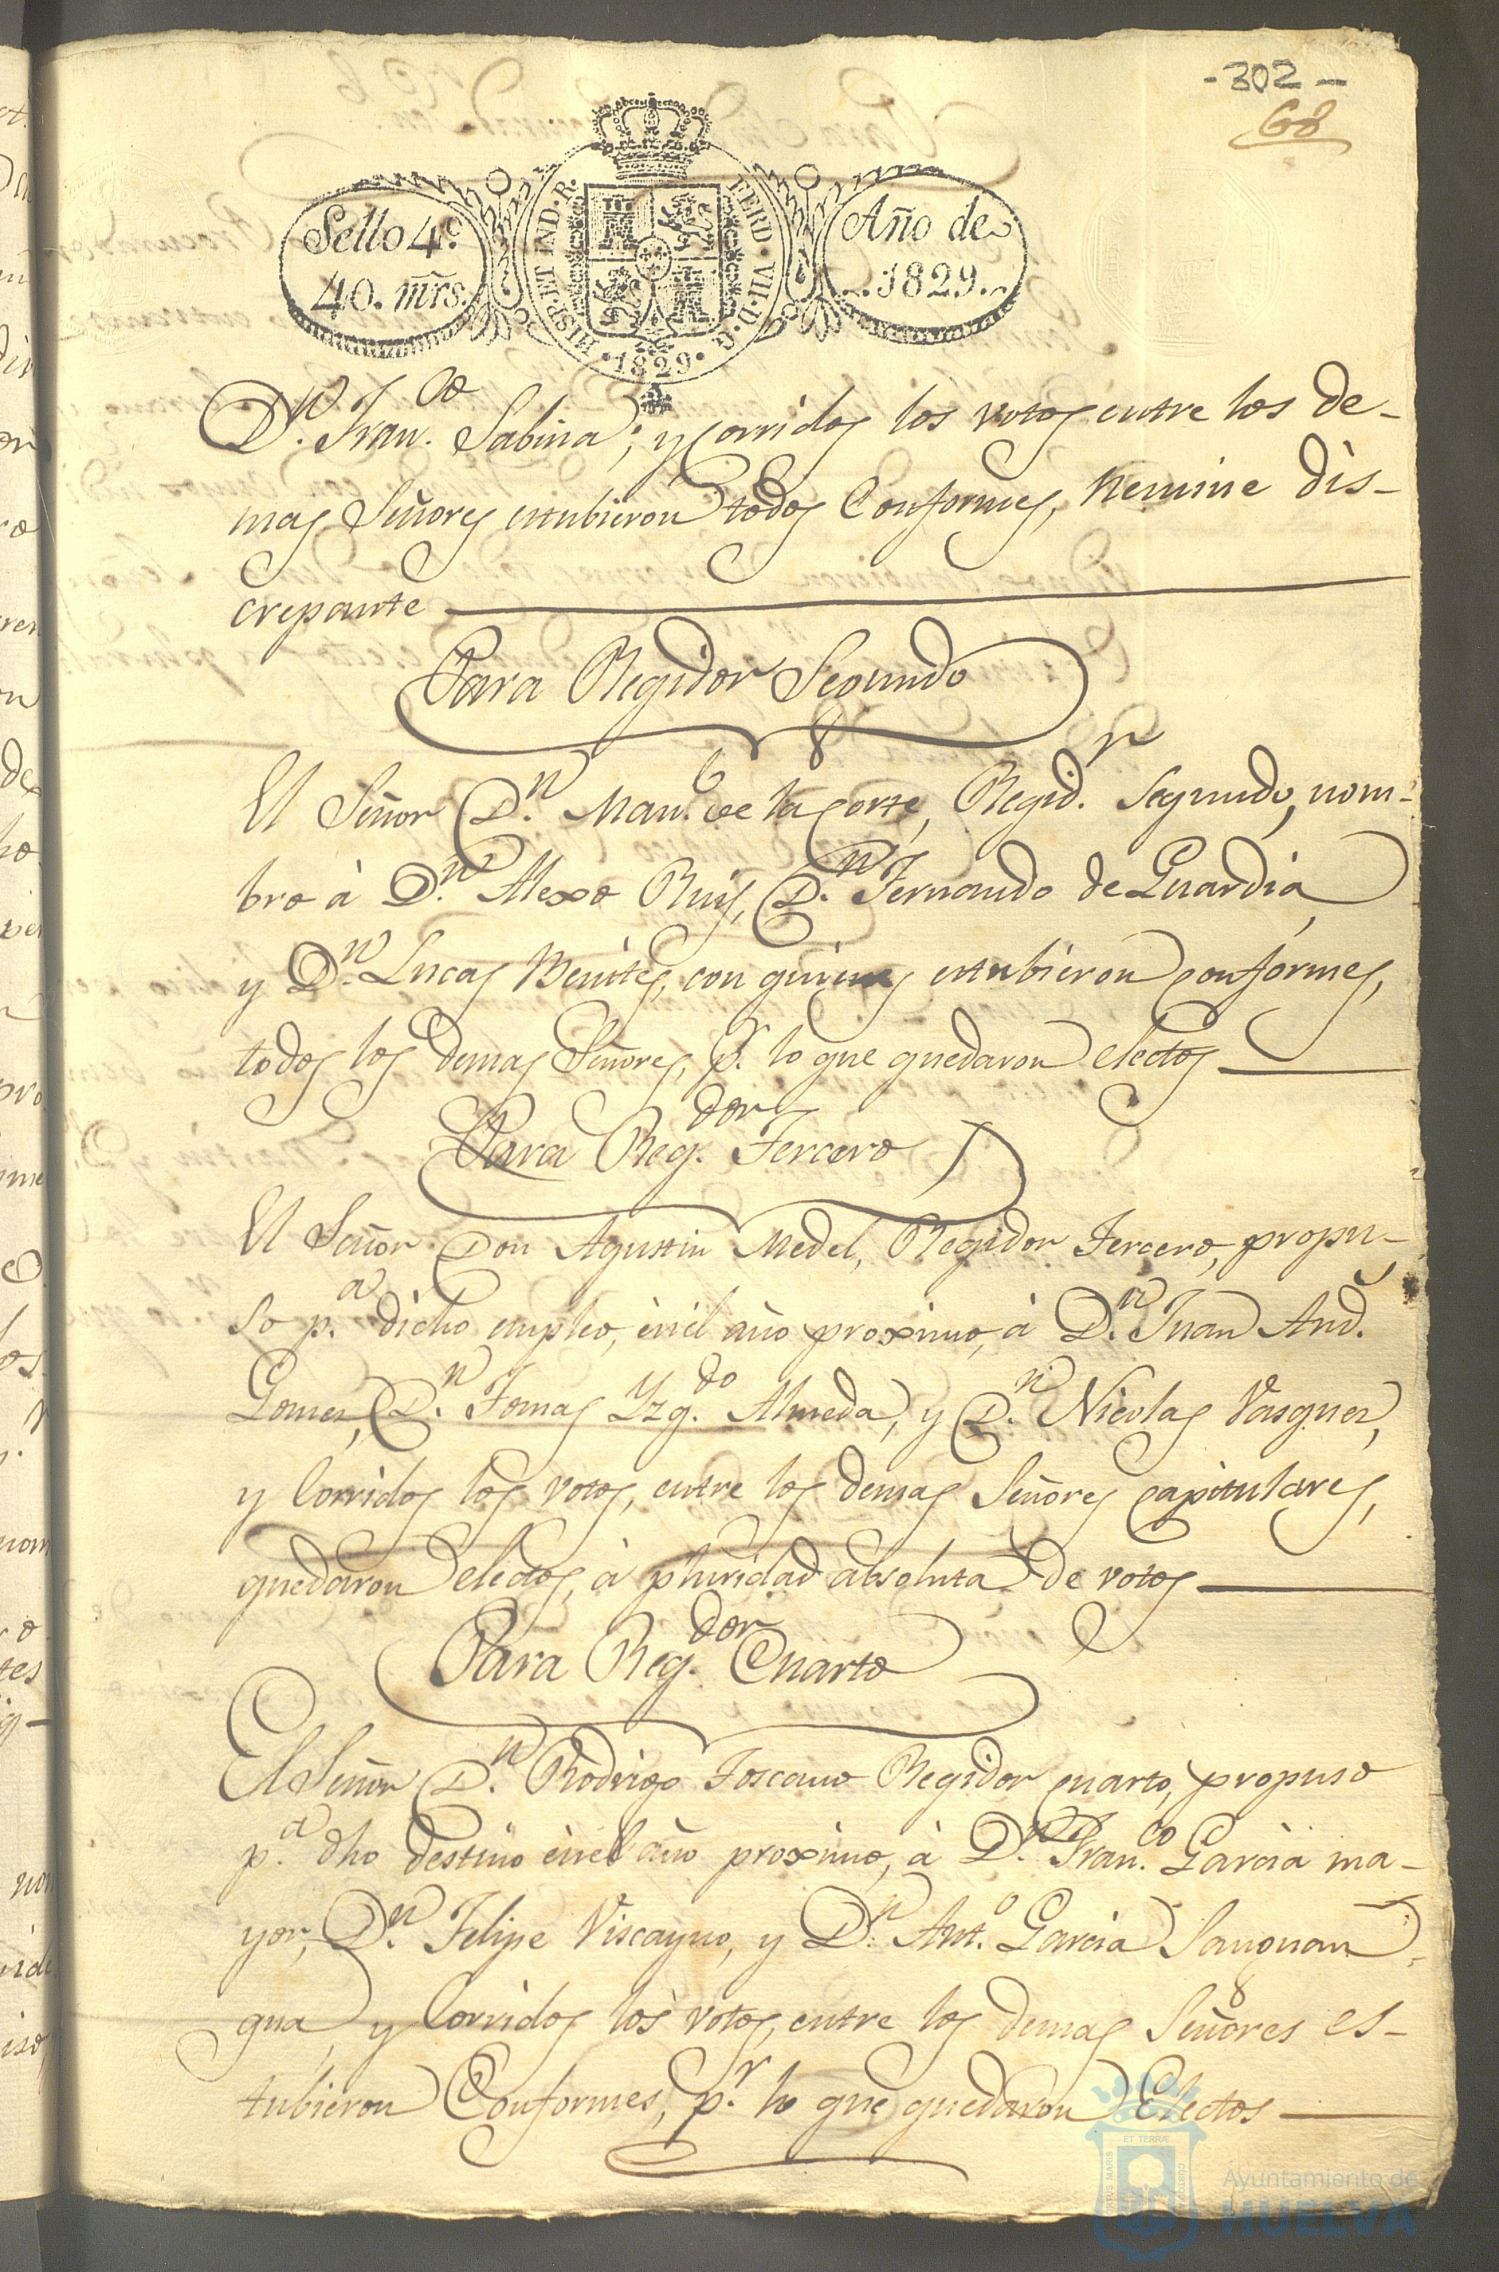 -302-
68
Sello 4º
40. mrs.
HISP. ET IND. R. FERD. VII. D. G. 1829.
Año de
1829.
D.n Fran.co Sabina; y corridos los votos entre los de-
mas Señores estubieron todos Conformes, nemine dis-
crepante
Para Regidor Segundo
El Señor D.n Man.l de la Corte, Regid.r Segundo, nom-
bro à D.n Alexo Ruiz, D.n Fernando de Guardia,
y D.n Lucas Benites, con quienes estubieron conformes,
todos los demas Señores, p.r lo que quedaron electos
Para Reg.dor Tercero
El Señor Don Agustin Medel, Regidor Tercero, propu-
so p.a dicho empleo, en el año proximo, à D.n Juan And.s
Gomez, D.n Tomas Yzq.do Almeda, y D.n Nicolas Vasquez,
y Corridos los votos, entre los demas Señores capitulares,
quedaron electos, à pluridad absoluta de votos
Para Reg.dor Cuarto
El Señor D.n Rodrigo Toscano Regidor cuarto, propuso
p.a dho destino en el año proximo, à D.n Fran.co Garcia ma-
yor, D.n Felipe Viscayno, y D.n Ant.o Garcia
y Corridos los votos, entre los demas Señores es-
tubieron Conformes, p.r lo que quedaron Electos
Ayuntamiento de
HUELVA